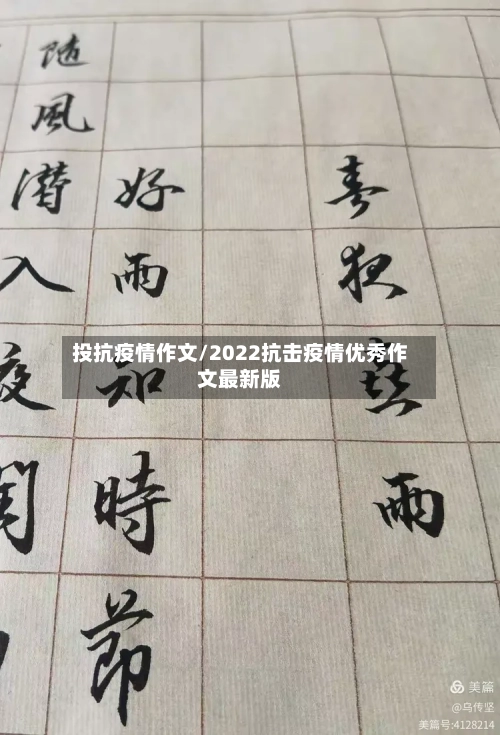 春夜喜雨
好雨知時節
随風潜入夜潤
投抗疫情作文/2022抗击疫情优秀作
文最新版
美篇
@乌传坚
美篇号:4128214